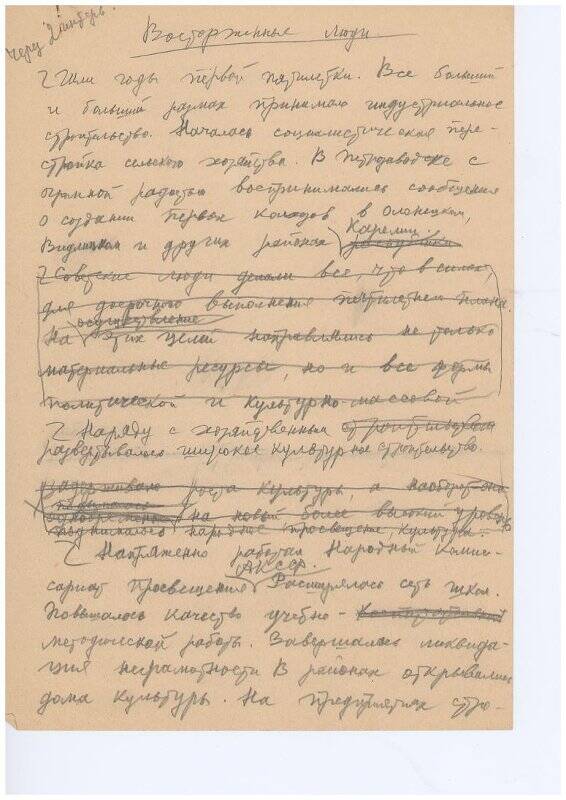 Через 2 интерв.!
Восторженные люди
Z Шли годы первой пятилетки. Все больший
и больший размах принимало индустриальное
строительство. Началась социалистическая пере-
стройка сельского хозяйства. В Петрозаводске с
огромной радостью воспринимались сообщения
о создании первых колхозов в Олонецком,
Видлицком и других районах Карелии.
республики
Z Советские люди делали все, что в силах,
для досрочного выполнения пятилетнего плана.
осуществление
На этих целей направлялись не только
материальные ресурсы, но и все формы
политической и культурно-массовой
Z Наряду с хозяйственным строительством
развертывалось широкое культурное строительство.
роста культуры, а наоборот она
поднималась
одновременно на новый более высокий уровень
поднималось народное просвещение, культура.
Z Напряженно работал Народный Комис-
АКССР.
сариат просвещения Расширялась сеть школ.
Повышалось качество учебно-воспитательной
методической работы. Завершалась ликвида-
ция неграмотности В районах открывались
дома культуры. На предприятиях стро-